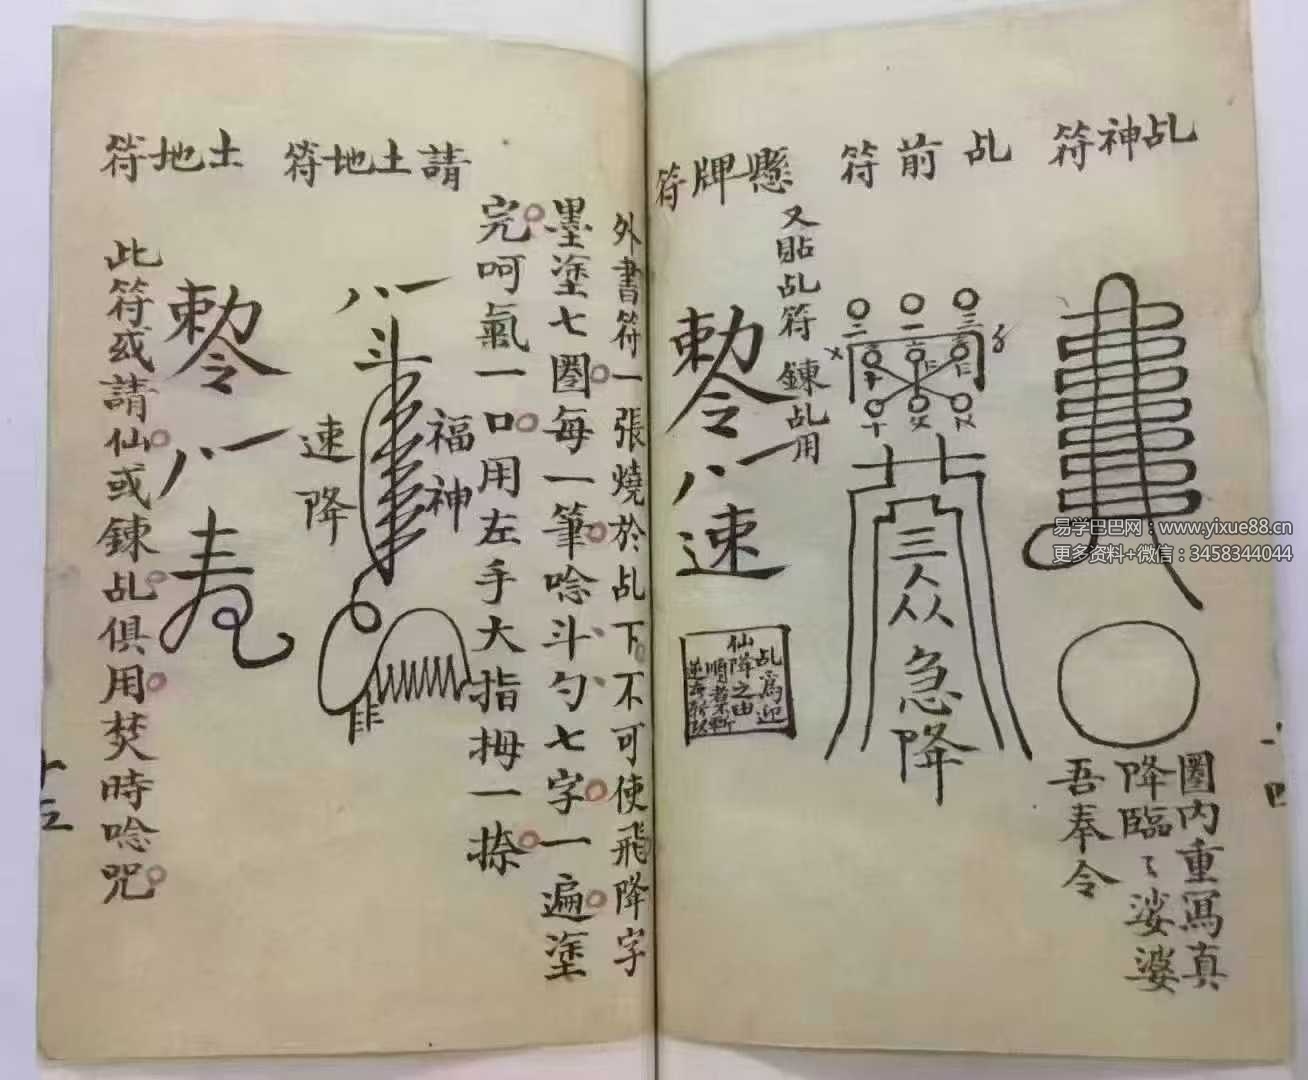 乩神符
圈内重寫真
降臨〻娑婆
吾奉令
乩前符
三 一 二
三
急降
懸牌符
又貼乩符鍊乩用
敕令
八一
速
乩為迎
仙降之由
順者不斬
外書符一張燒於乩下不可使飛降字
墨塗七圈每一筆唸斗勺七字一遍塗
完呵氣一口用左手大指拇一捺
請土地符
八一
斗
福神
速降
土地符
敕令
八一
此符或請仙或鍊乩俱用焚時唸咒
十三
十四
易学巴巴网：www.yixue88.cn
更多资料+微信：3458344044